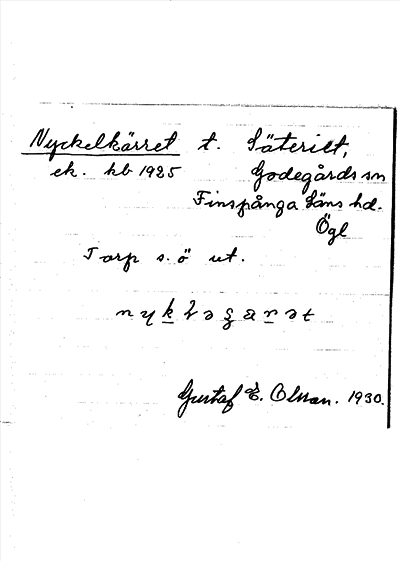 Nyckelkärret t. Säteriet,
ek. kb 1925 Godegårds sn
Finspånga Läns hd.
Ögl
Torp s. ö ut.
Gustaf E. Olsson. 1930.